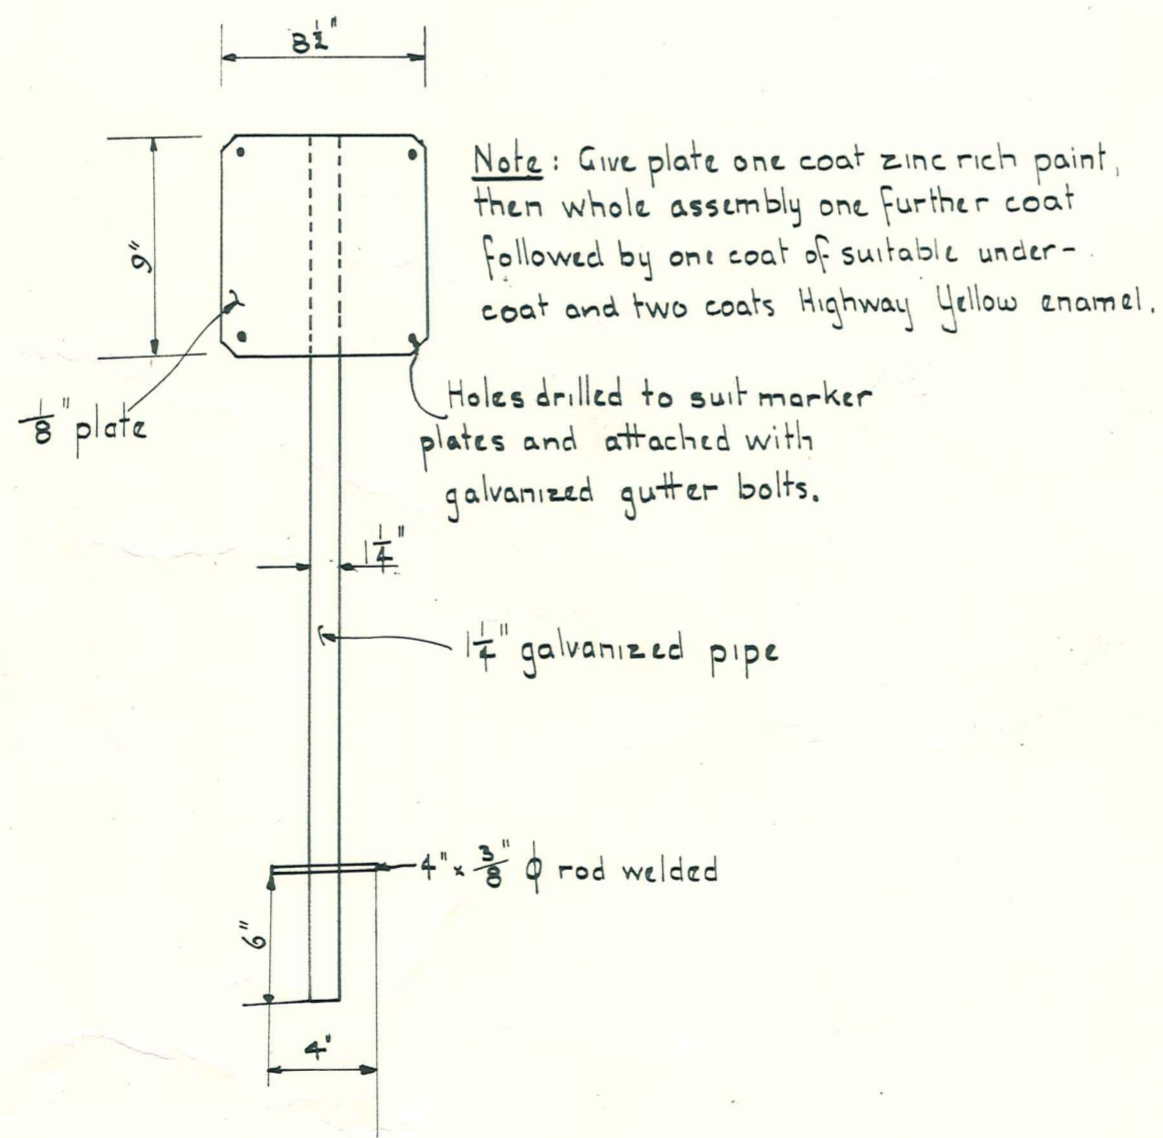 8½"
Note: Give plate one coat zinc rich paint,
then whole assembly one further coat
followed by one coat of suitable under-
coat and two coats Highway Yellow enamel.
9"
⅛" plate
Holes drilled to suit marker
plates and attached with
galvanized gutter bolts.
1¼"
1¼" galvanized pipe
4" x ⅜" ϕ rod welded
6"
4"